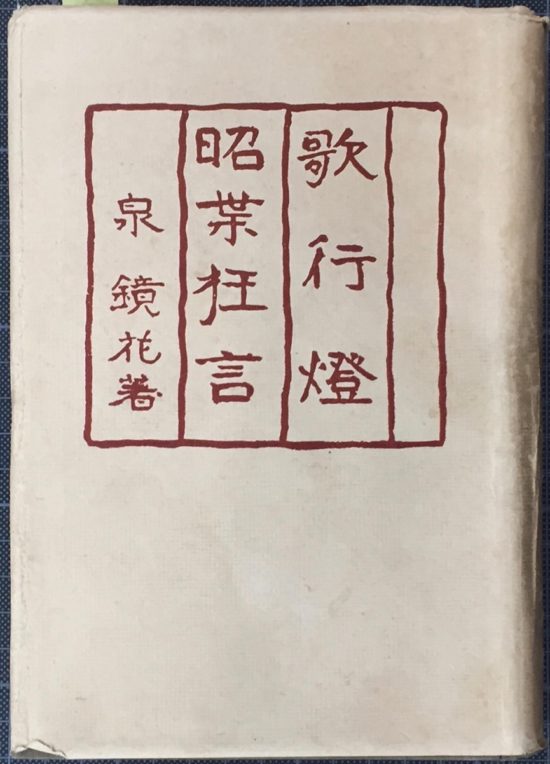 歌行燈
昭葉狂言
泉鏡花著